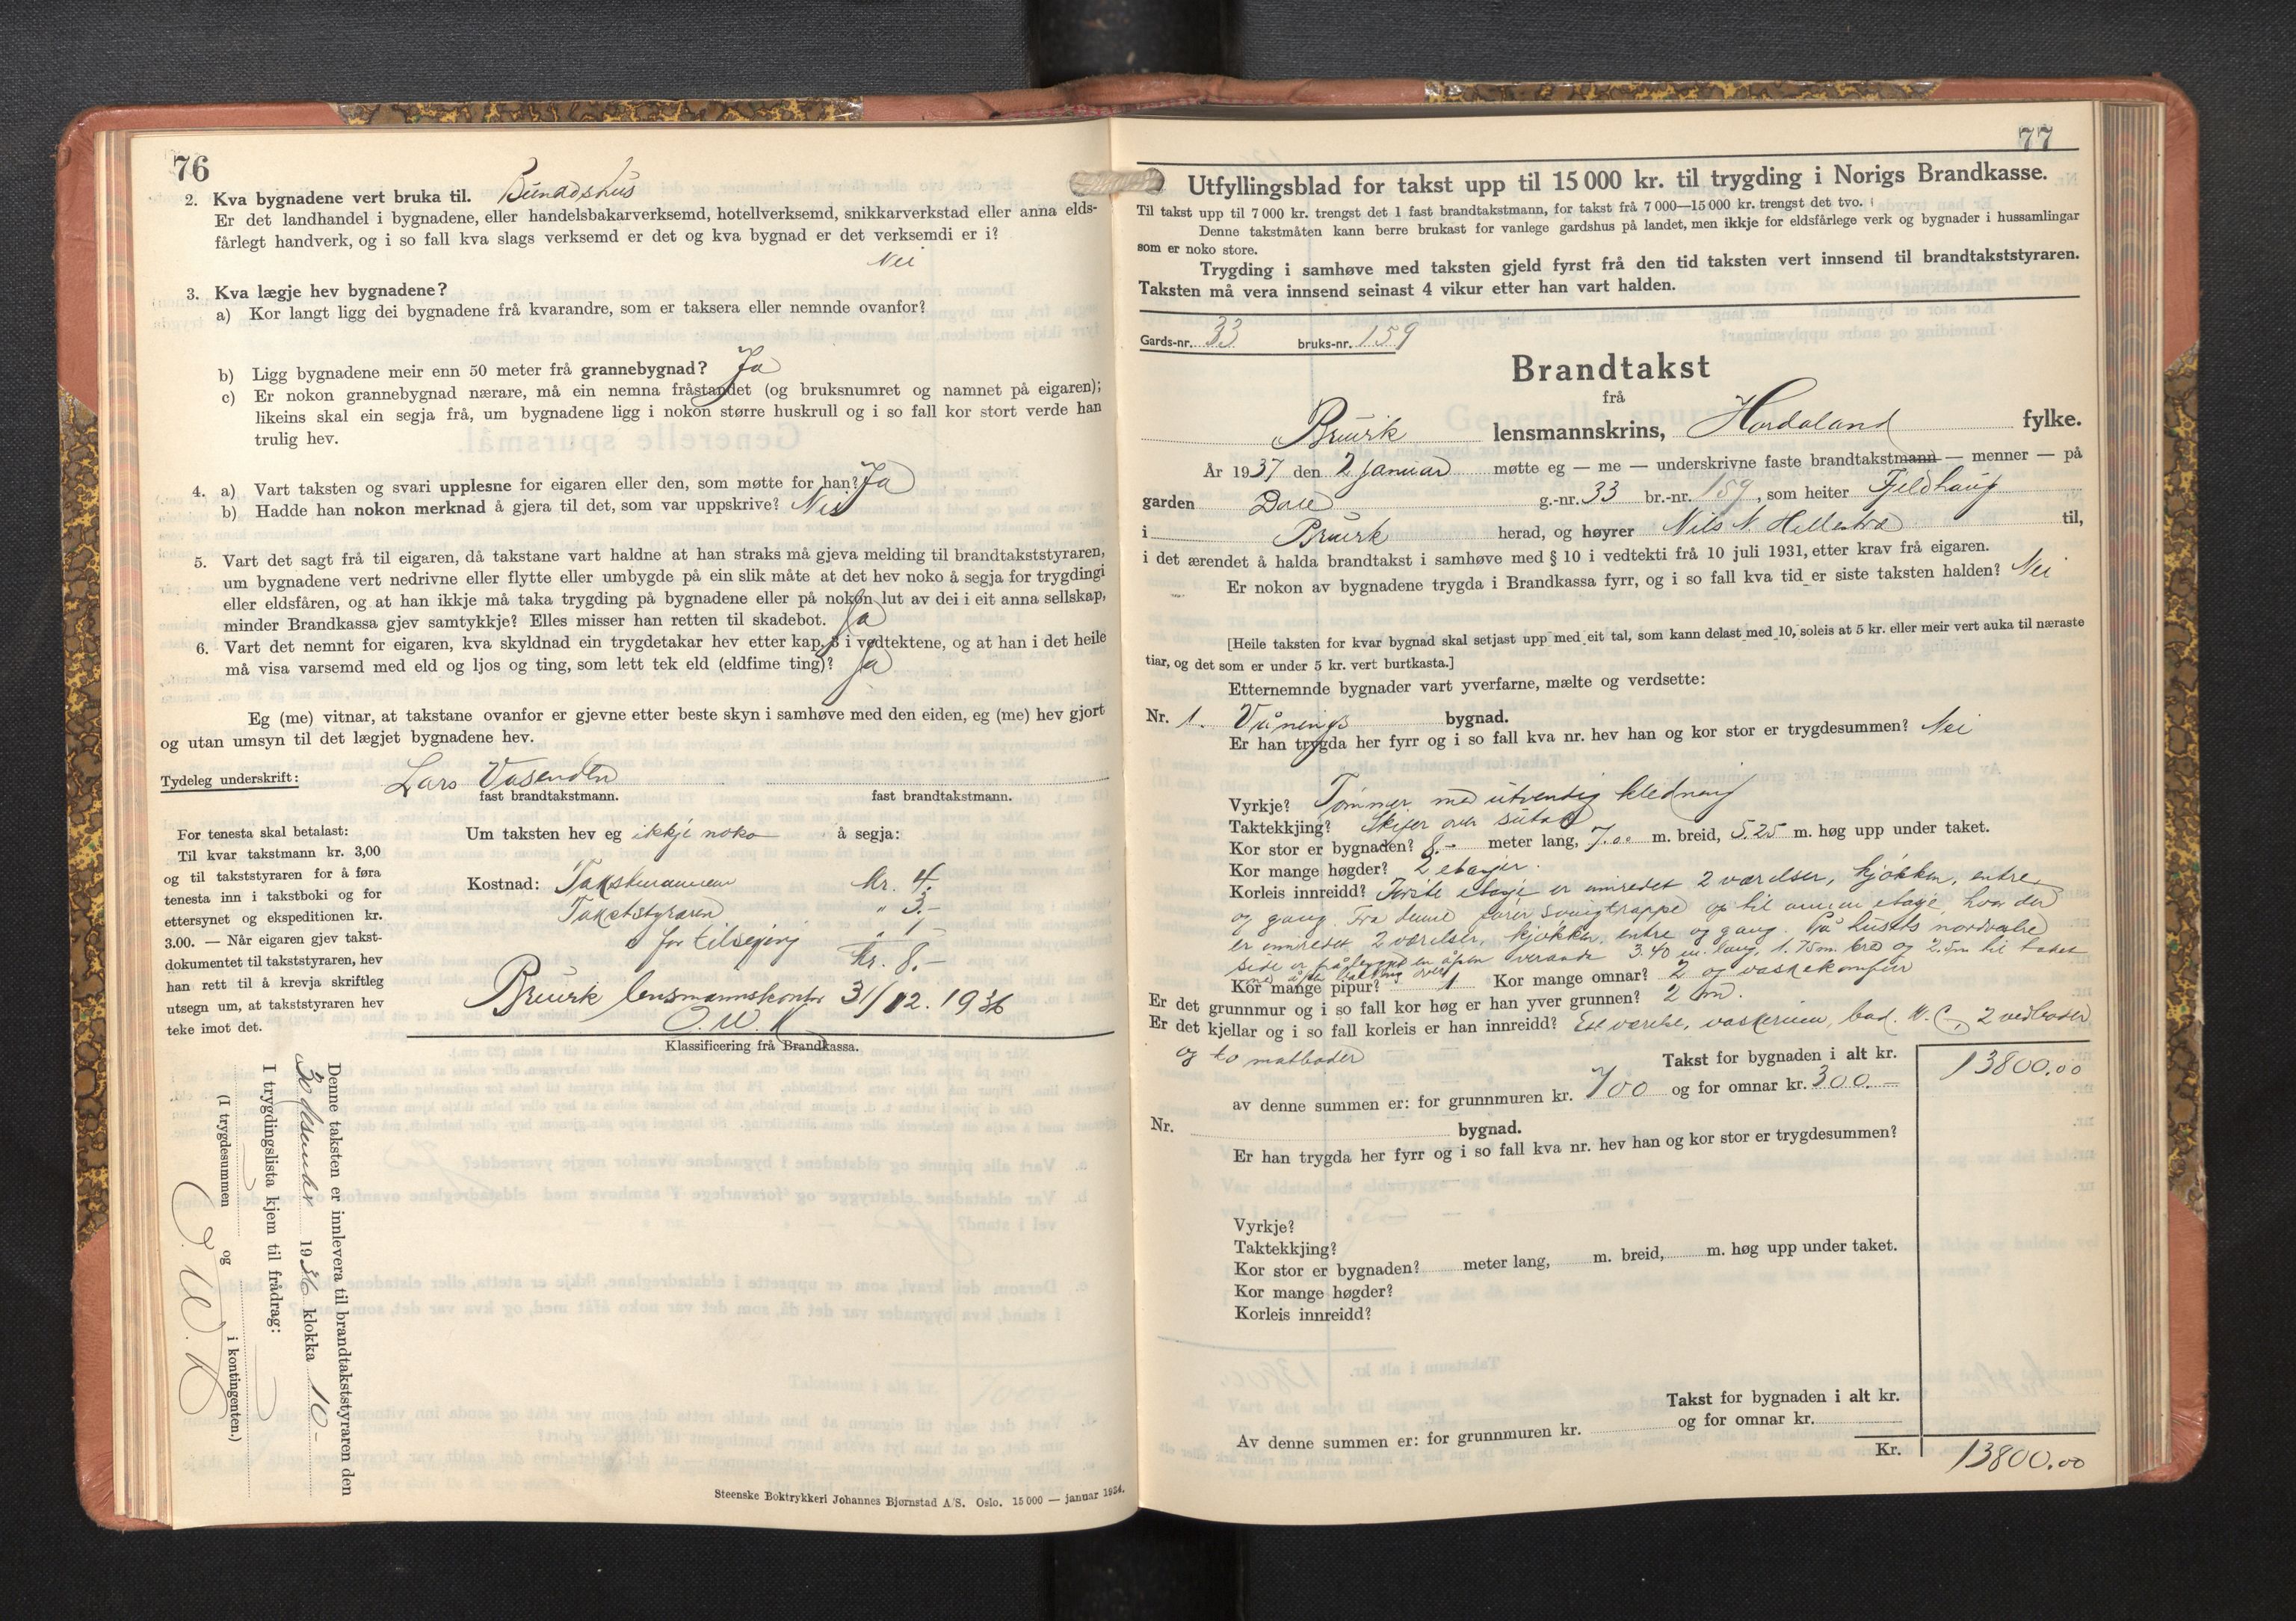 76
2. Kva bygnadene vert bruka til. Bunadshus
Er det landhandel i bygnadene, eller handelsbakarverksemd, hotellverksemd, snikkarverkstad eller anna elds-
fårlegt handverk, og i so fall kva slags verksemd er det og kva bygnad er det verksemdi er i?
Nei
3. Kva lægje hev bygnadene?
a) Kor langt ligg dei bygnadene frå kvarandre, som er taksera eller nemnde ovanfor?
b) Ligg bygnadene meir enn 50 meter frå grannebygnad? Ja
c) Er nokon grannebygnad nærare, må ein nemna fråstandet (og bruksnumret og namnet på eigaren);
likeins skal ein segja frå, um bygnadene ligg i nokon større huskrull og i so fall kor stort verde han
trulig hev.
4. a) Vart taksten og svari upplesne for eigaren eller den, som møtte for han? Ja
b) Hadde han nokon merknad å gjera til det, som var uppskrive? Nei
5. Vart det sagt frå til eigaren, då takstane vart haldne at han straks må gjeva melding til brandtakststyraren,
um bygnadene vert nedrivne eller flytte eller umbygde på ein slik måte at det hev noko å segja for trygdingi
eller eldsfåren, og at han ikkje må taka trygding på bygnadene eller på nokon lut av dei i eit anna sellskap,
minder Brandkassa gjev samtykkje? Elles misser han retten til skadebot. Ja
6. Vart det nemnt for eigaren, kva skyldnad ein trygdetakar hev etter kap. 8 i vedtektene, og at han i det heile
må visa varsemd med eld og ljos og ting, som lett tek eld (eldfime ting)? Ja
Eg (me) vitnar, at takstane ovanfor er gjevne etter beste skyn i samhøve med den eiden, eg (me) hev gjort
og utan umsyn til det lægjet bygnadene hev.
Tydeleg underskrift: Lars Vasenden
fast brandtakstmann. fast brandtakstmann.
For tenesta skal betalast:
Til kvar takstmann kr. 3,00
og til takststyraren for å føra
tenesta inn i takstboki og for
ettersynet og ekspeditionen kr.
3.00. — Når eigaren gjev takst-
dokumentet til takststyraren, hev
han rett til å krevja skriftleg
utsegn um, at takststyraren hev
teke imot det.
Um taksten hev eg ikkje noko å segja:
Kostnad: Takstmannen kr. 4.-
Takststyraren " 3.-
" for tilsegjing " 1.-
Kr. 8.-
Bruvik lensmannskontor 31/12. 1936
O. W. K
Klassificering frå Brandkassa.
Denne taksten er innlevera til brandtakststyraren den
30 desember 1936 klokka 10-
I trygdingslista kjem til frådrag:
(I trygdesummen og i kontingenten.)
O. W. K
Steenske Boktrykkeri Johannes Bjørnstad A/S. Oslo. 15 000 — januar 1934.
77
Utfyllingsblad for takst upp til 15 000 kr. til trygding i Norigs Brandkasse.
Til takst upp til 7 000 kr. trengst det 1 fast brandtakstmann, for takst frå 7 000—15 000 kr. trengst det tvo.
Denne takstmåten kann berre brukast for vanlege gardshus på landet, men ikkje for eldsfårlege verk og bygnader i hussamlingar
som er noko store.
Trygding i samhøve med taksten gjeld fyrst frå den tid taksten vert innsend til brandtakststyraren.
Taksten må vera innsend seinast 4 vikur etter han vart halden.
Gards-nr. 33 bruks-nr. 159
Brandtakst
frå
Bruvik lensmannskrins, Hordaland fylke.
År 1937 den 2 januar møtte eg — me — underskrivne faste brandtakstmann — menner — på
garden Dale g.-nr. 33 br.-nr. 159, som heiter Fjeldhaug
i Bruvik herad, og høyrer Nils N. Hellestræ til,
i det ærendet å halda brandtakst i samhøve med § 10 i vedtekti frå 10 juli 1931, etter krav frå eigaren.
Er nokon av bygnadene trygda i Brandkassa fyrr, og i so fall kva tid er siste taksten halden? Nei
[Heile taksten for kvar bygnad skal setjast upp med eit tal, som kann delast med 10, soleis at 5 kr. eller meir vert auka til næraste
tiar, og det som er under 5 kr. vert burtkasta.]
Etternemnde bygnader vart yverfarne, mælte og verdsette:
Nr. 1. Vånings bygnad.
Er han trygda her fyrr og i so fall kva nr. hev han og kor stor er trygdesummen? Nei
Vyrkje? Tømmer med utvendig kledning
Taktekkjing? Skifer over sutak
Kor stor er bygnaden? 8.- meter lang, 7.00 m. breid, 5.25 m. høg upp under taket.
Kor mange høgder? 2 etasjer.
Korleis innreidd? Første etasje er innredet 2 værelser, kjøkken, entre
og gang. Fra denne fører svingtrappe op til annen etasje, hvor der
er innredet 2 værelser, kjøkken, entre og gang. På husets nordvestre
side er påbygget en åpen veranda 3.40 m. lang, 1.75m. bred og 2.5m til taket
med åpen balkong over
Kor mange pipur? 1 Kor mange omnar? 2 og vaskekomfur
Er det grunnmur og i so fall kor høg er han yver grunnen? 2 m.
Er det kjellar og i so fall korleis er han innreidd? Eit værelse, vaskerum, bad, W.C., 2 vedboder
og to matboder
Takst for bygnaden i alt kr. 13800.00
av denne summen er: for grunnmuren kr. 700 og for omnar kr. 300.-
Nr. bygnad.
Er han trygda her fyrr og i so fall kva nr. hev han og kor stor er trygdesummen?
Vyrkje?
Taktekkjing?
Kor stor er bygnaden? meter lang, m. breid, m. høg upp under taket.
Kor mange høgder?
Korleis innreidd?
Takst for bygnaden i alt kr.
Av denne summen er: for grunnmuren kr. og for omnar kr.
Kr. 13800.00